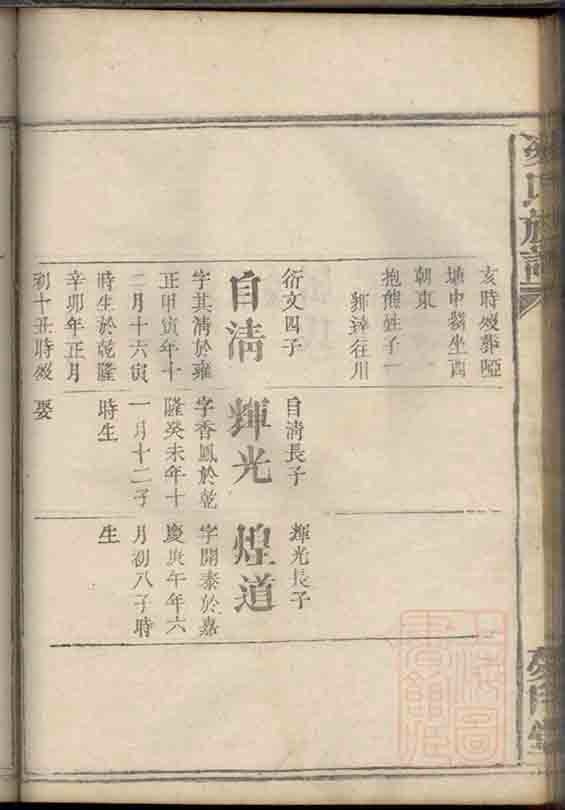 氏族譜
亥時歿葬啞
塘中嶺坐酉
朝東
抱熊姓子一
郛達往川
衍文四子
自清
字其清於雍
正甲寅年十
二月十六寅
時生於乾隆
辛卯年正月
初十丑時歿
娶
自清長子
輝光
字香鳳於乾
隆癸未年十
一月十二子
時生
輝光長子
煌道
字開泰於嘉
慶庚午年六
月初八子時
生
上海圖
書館藏